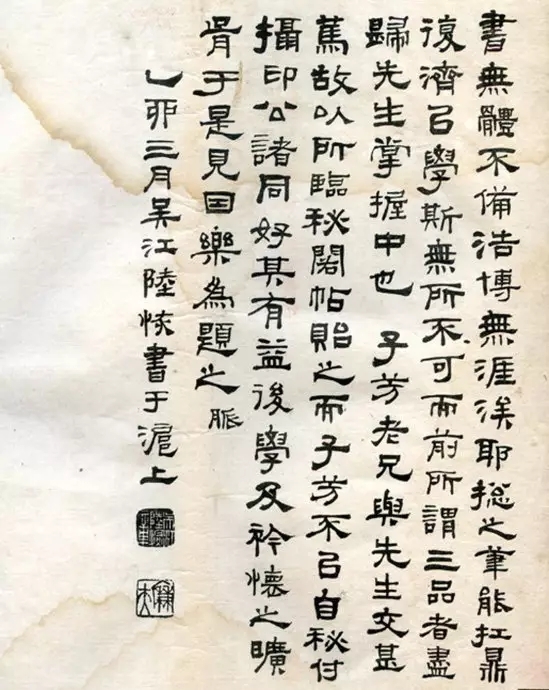 書無體不備浩博無涯涘耶摠之筆能扛鼎
復濟㠯學斯無所不可而前所謂三品者盡
歸先生掌握中也 子芳老兄與先生交甚
篤故以所臨秘閣帖貽之而子芳不㠯自秘付
攝印公諸同好其有益後學及衿懷之曠
胥于是見因樂為題之 脈
乙卯三月吳江陸恢書于滬上
廉夫